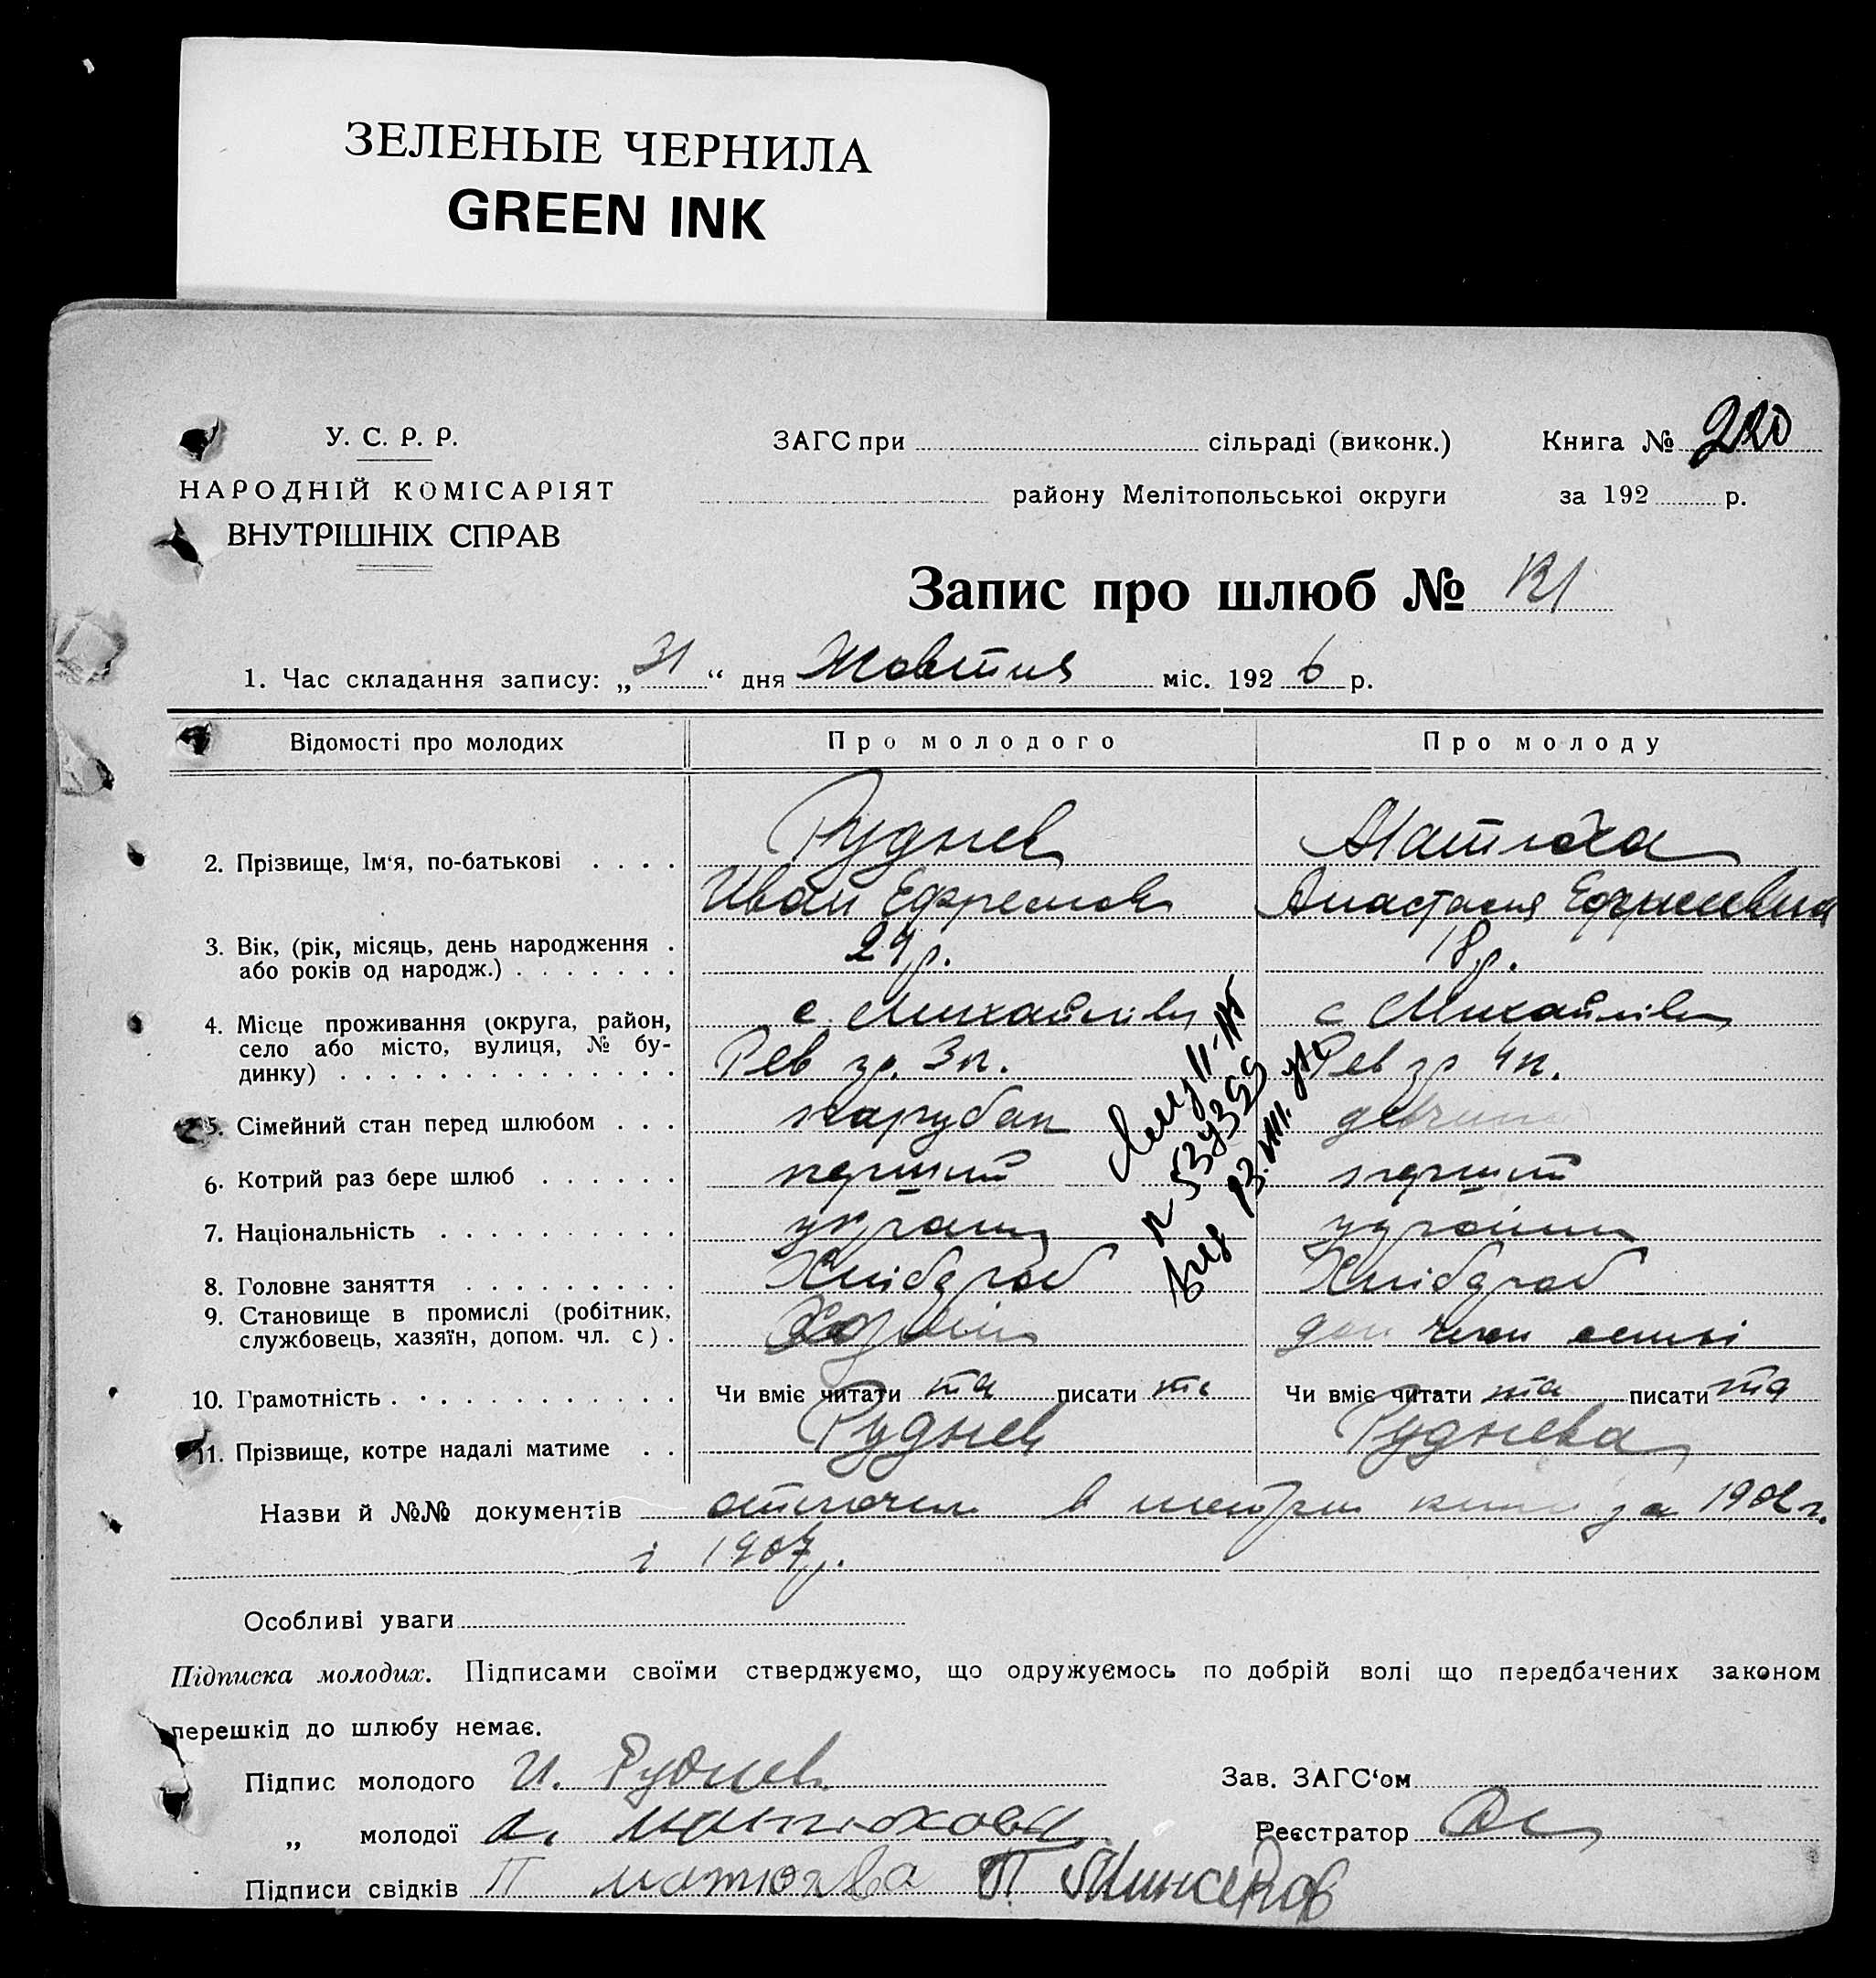 ЗЕЛЕНЫЕ ЧЕРНИЛА
GREEN INK
У. С. Р. Р.
НАРОДНІЙ КОМІСАРІЯТ
ВНУТРІШНІХ СПРАВ
ЗАГС при сільраді (виконк.)
Книга № 220
району Мелітопольської округи
за 192 р.
Запис про шлюб № 121
1. Час складання запису: „31“ дня Жовтня міс. 1926 р.
Відомості про молодих
Про молодого
Про молоду
2. Прізвище, Ім'я, по-батькові
Руднев
Матюха
Иван Ефремов
Анастасия
3. Вік, (рік, місяць, день народження
або років од народж.)
24р.
18р.
4. Місце проживання (округа, район,
село або місто, вулиця, № бу-
динку)
с. Михайлівка
с Михайлівка
Рев гр. 3к.
Рев гр 4к.
5. Сімейний стан перед шлюбом
парубак
дівчина
6. Котрий раз бере шлюб
перший
перший
7. Національність
україн
україн
8. Головне заняття
Хлібороб
Хлібороб
9. Становище в промислі (робітник,
службовець, хазяїн, допом. чл. с).
Хазяїн
доп член семьі
10. Грамотність
Чи вміє читати та писати та
Чи вміє читати та писати та
11. Прізвище, котре надалі матиме
Руднев
Руднева
Назви й №№ документів в метри за 1902 г.
і 1907р.
Особливі уваги
Підписка молодих. Підписами своїми стверджуємо, що одружуємось по добрій волі що передбачених законом
перешкід до шлюбу немає.
Підпис молодого И. Руднев
Зав. ЗАГС'ом
„ молодої А. Матюхова
Реєстратор
Підписи свідків П Матюхва П